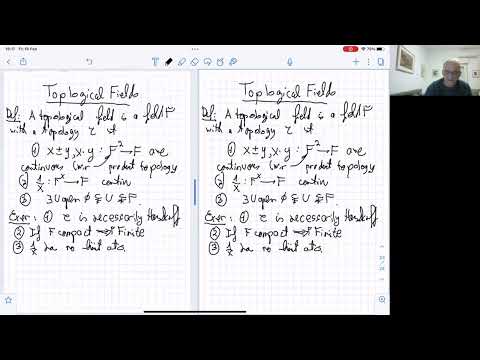 10:17 Fri 10 Feb
70%
Toplogical Fields
Def: A topological field is a field F
with a topology τ st
① x±y, x·y : F² → F are
continuous (wir product topology
② 1/x : Fˣ → F contin
③ ∃ U open ∅ ⊊ U ⊊ F.
Exer: ① τ is necessarily Hausdorff
② If F compact ⟹ Finite
③ 1/x
Toplogical Fields
Def: A topological field is a field F
with a topology τ st
① x±y, x·y : F² → F are
continuous (wir product topology
② 1/x : Fˣ → F contin
③ ∃ U open ∅ ⊊ U ⊊ F.
Exer: ① τ is necessarily Hausdorff
② If F compact ⟹ Finite
③ 1/x